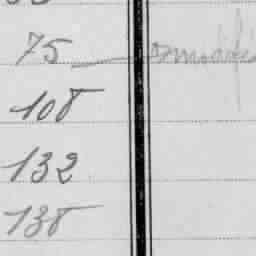 75
108
132
138